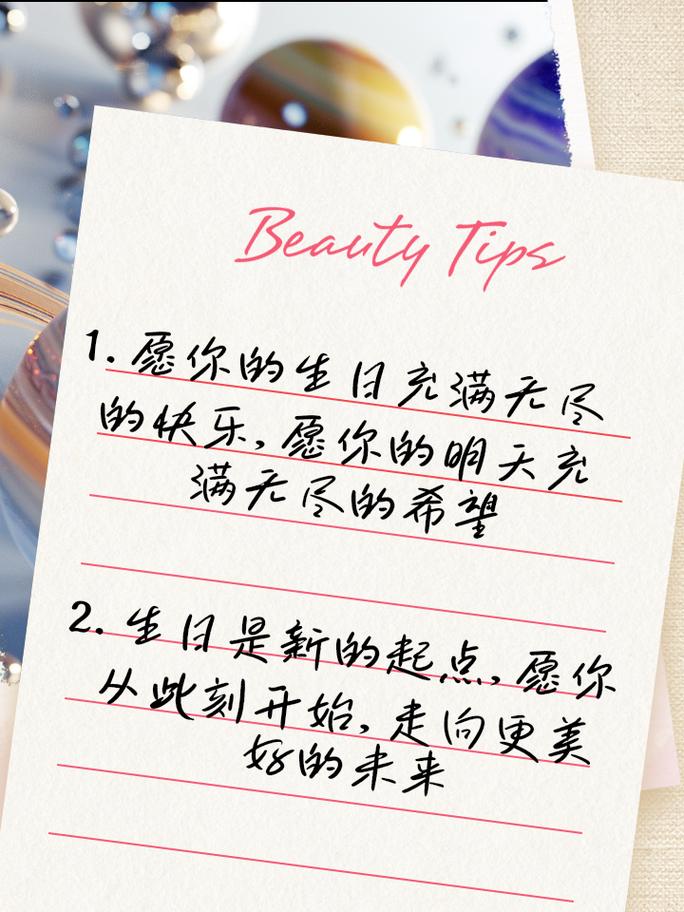 Beauty Tips
1. 愿你的生日充满无尽
的快乐,愿你的明天充
满无尽的希望
2. 生日是新的起点,愿你
从此刻开始,走向更美
好的未来